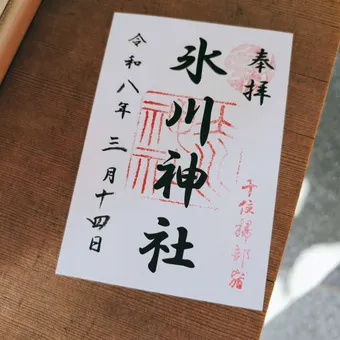 奉拝
千住掃部宿
氷川神社
令和八年三月十四日